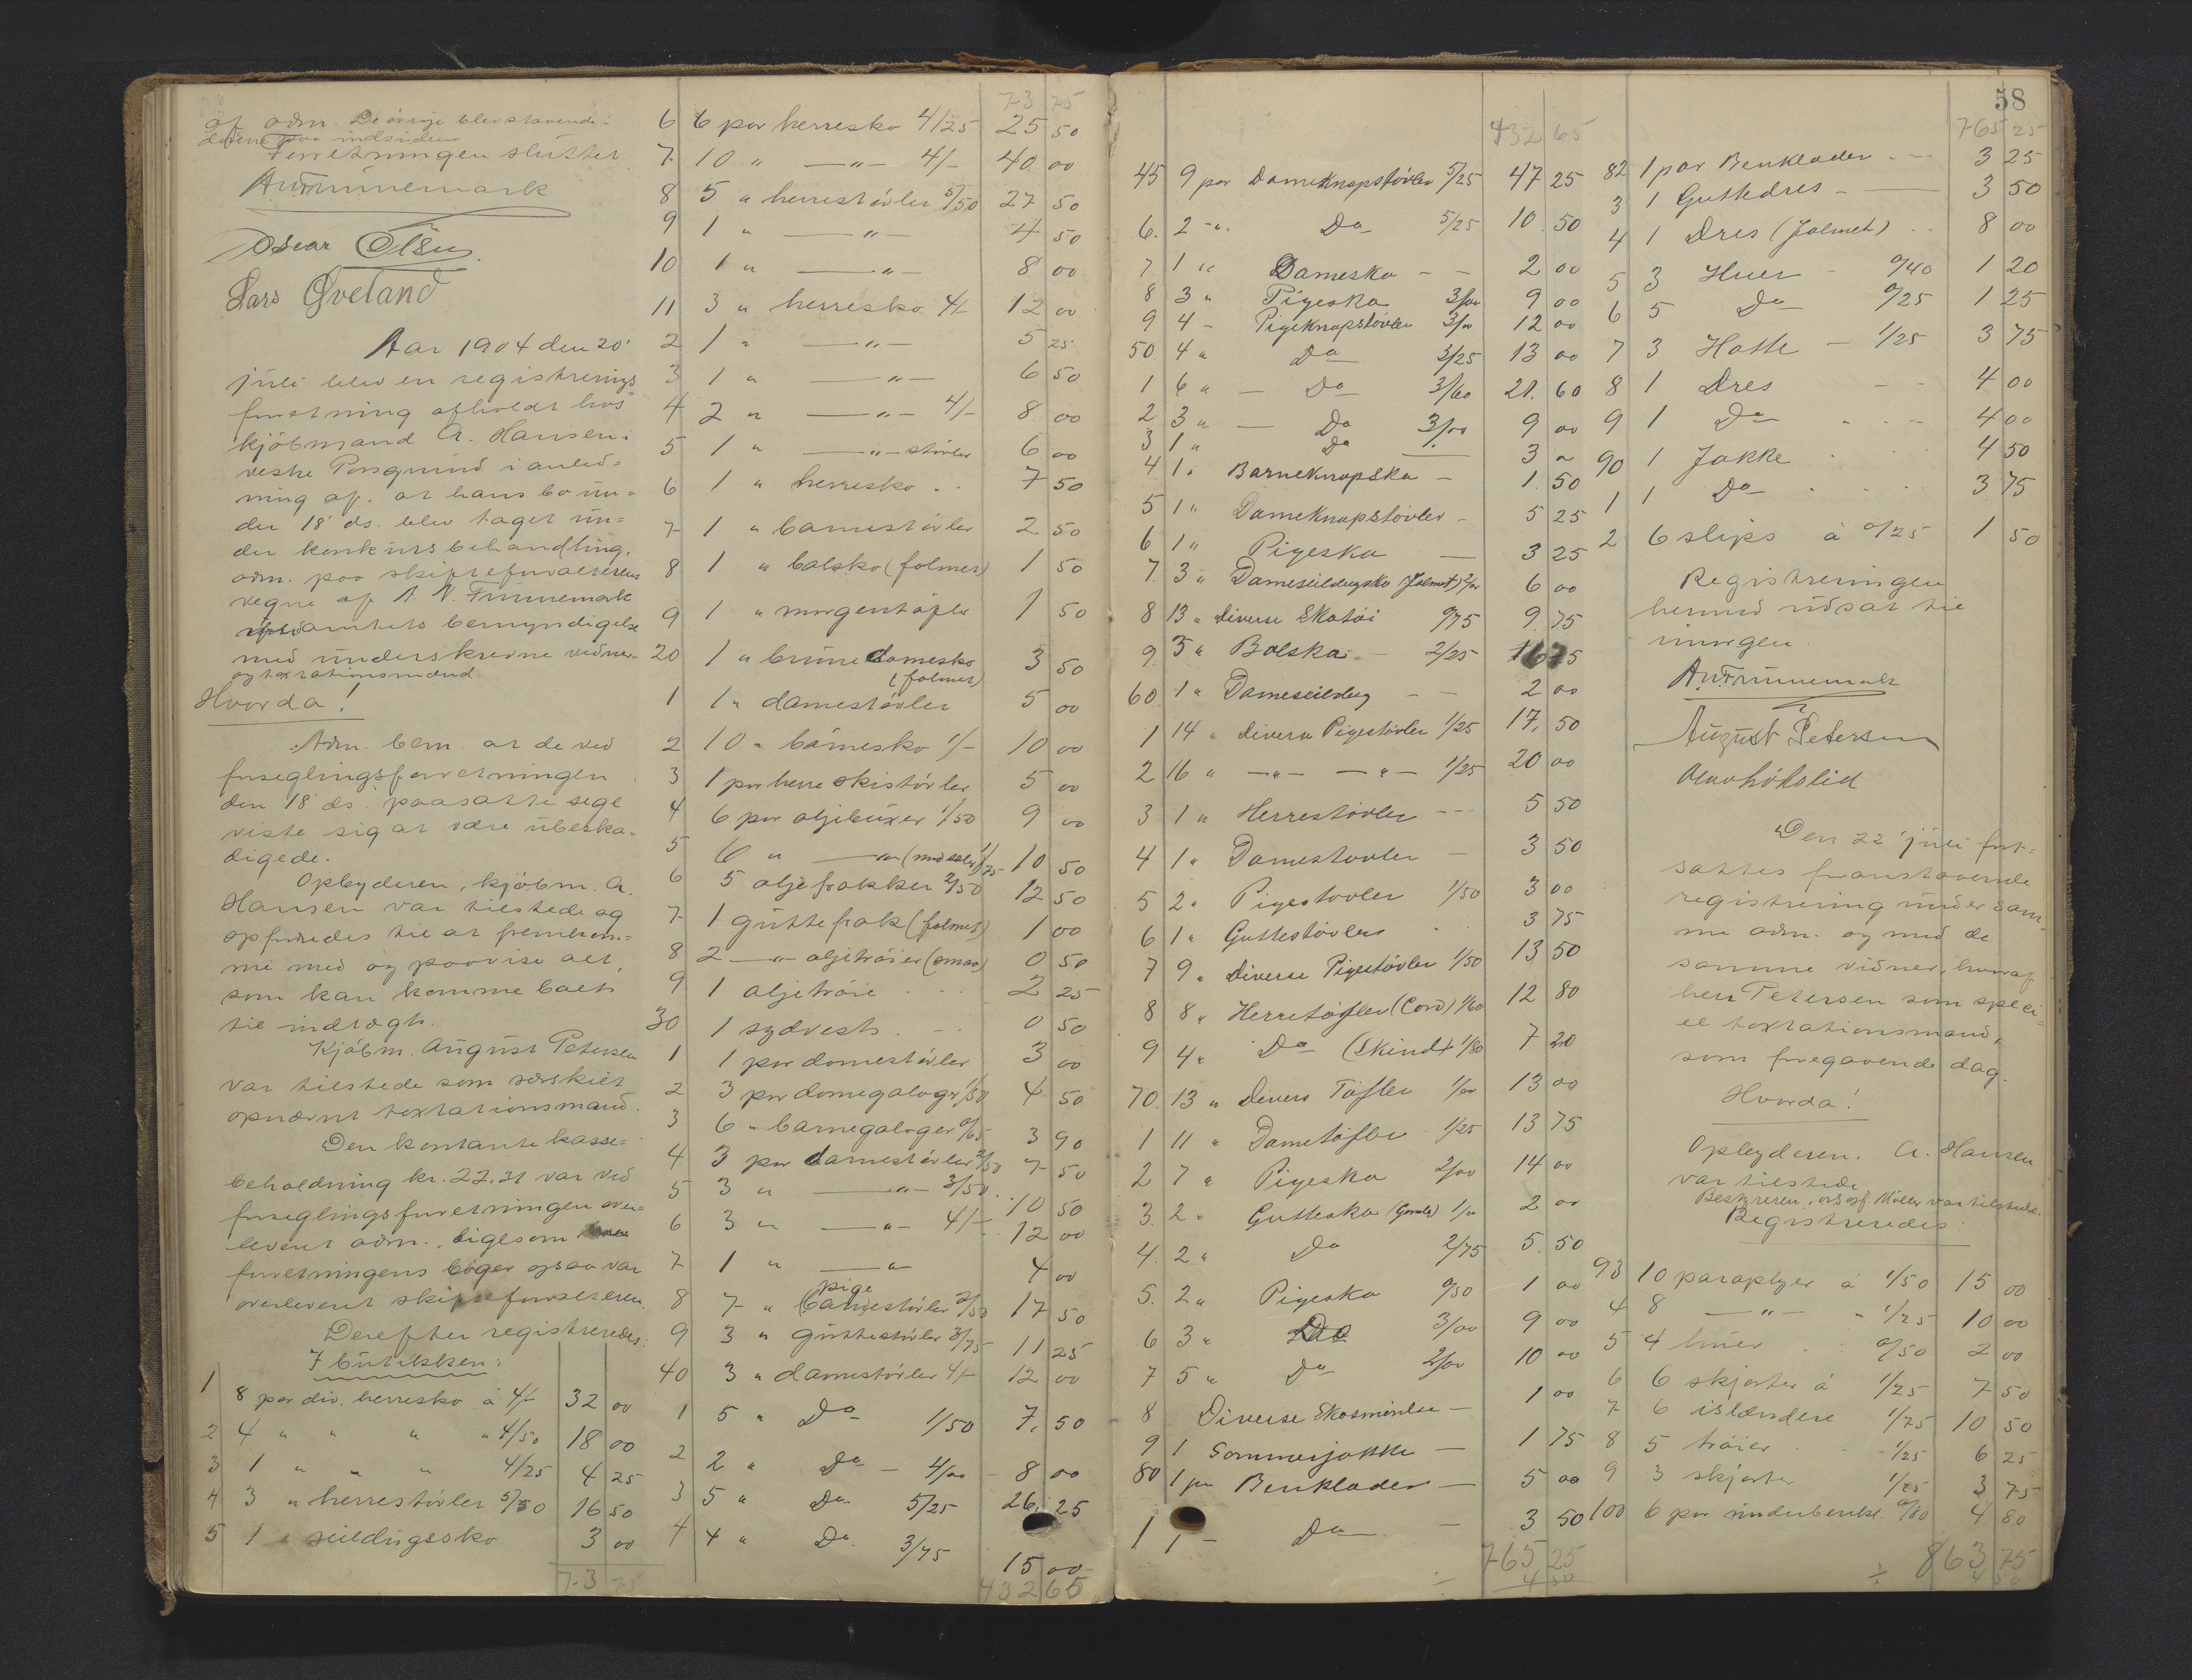 af adm. De øvrige blev staaende i
døren paa indsiden
Forretningen sluttet
A N Finnemark
Oscar Olsen
Lars Øveland
Aar 1904 den 20'
juli blev en registrerings
forretning afholdt hos
kjøbmand A. Hansen i
vestre Porsgrund i anled=
ning af, at hans bo un=
der 18' ds. blev taget un=
der konkursbehandling,
adm. paa skifteforvalterens
vegne af A. N. Finnemark
amtets bemyndigelse
med underskrevne vidner
og taxtationsmænd.
Hvorda!
Adm. bem. at de ved
forseglingsforretningen
den 18' ds. paasatte segl
viste sig at være ubeska=
digede.
Opbyderen, kjøbm. A.
Hansen var tilstede og
opfordredes til at fremkom=
me med og paavise alt,
som kan komme boet
til indtægt.
Kjøbm. August Petersen
var tilstede som særskilt
opnævnt taxtationsmand.
Den kontante kasse=
beholdning kr. 22.31 var ved
forseglingsforretningen over=
leveret adm., ligesom
forretningens bøger ogsaa var
overleveret skifteforvalteren.
Derefter registreredes:
I butikken:
1 8 par div. herresko á 4/- 32 00
2 4 " " " " 4/50 18 00
3 1 " " " 4/25 4 25
4 3 " herrestøvler 5/50 16 50
5 1 " seildugssko 3 00
73 75
73 75
6 6 par herresko 4/25 25 50
7 10 " —"— 4/- 40 00
8 5 " herrestøvler 5/50 27 50
9 1 " —"— 4 50
10 1 " —"— 8 00
11 3 " herresko 4/- 12 00
2 1 " —"— 5 25
3 1 " —"— 6 50
4 2 " —"— 4/- 8 00
5 1 " —"— støvler 6 00
6 1 " herresko 7 50
7 1 " barnestøvler 2 50
8 1 " balsko (falmet) 1 50
9 1 " morgentøfler 1 50
20 1 " brune damesko
(falmet) 3 50
1 1 " damestøvler 5 00
2 10 " barnesko 1/- 10 00
3 1 par herre skistøvler 5 00
4 6 par oljebuxer 1/50 9 00
5 6 " —"— 1/75 10 50
6 5 oljefrakker 2/50 12 50
7 1 guttefrak (falmet) 1 00
8 2 —"— oljetrøier (smaa) 0 50
9 1 oljetrøie 2 25
30 1 sydvest 0 50
1 1 par damestøvler 3 00
2 3 par damegaloger 1/50 4 50
3 6 " barnegaloger 0/65 3 90
4 3 par damestøvler 2/50 7 50
5 3 " —"— 3/50 10 50
6 3 " —"— 4/- 12 00
7 1 " —"— 4 00
pige
8 7 " (barne)støvler 2/50 17 50
9 3 " guttestøvler 3/75 11 25
40 3 " damestøvler 4/- 12 00
1 5 " Do 1/50 7,50
2 2 " Do — 4/00 8 00
3 5 " Do 5/25 26,25
4 4 " Do 3/75 15 00
432 65
432 65
45 9 par Dameknapstøvler 5/25 47 25
6. 2 -"- Do 5/25 10 50
7 1 " Damesko - - 2 00
8 3 " Pigesko 3/00 9 00
9 4 - Pigeknapstøvler 3/00 12 00
50 4 " Do 3/25 13 00
1 6 " — Do 3/60 21.60
2 3 " — Do 3/00 9 00
3 1 " Do 3 "
4 1 " Barneknapsko - 1 50
5 1 " Dameknapstøvler - 5 25
6 1 " Pigesko — 3 25
7. 3 " Dameseildugsko (falmet) 2/00 6 00
8 13 " diverse Skotøi 0/75 9 75
9 3 " Balsko - 2/25
60 1 " Dameseildug - - 2 00
1 14 " diverse Pigestøvler 1/25 17,50
2 16 " —"— —"— 1/25 20 00
3 1 " Herrestøvler --- 5 50
4 1 " Damestøvler - 3 50
5 2 " Pigestøvler 1/50 3 00
6 1 " Guttestøvler 3 75
7 9 " diverse Pigestøvler 1/50 13 50
8 8 " Herretøfler (Cord) 1/60 12 80
9 4 " Do (Skind) 1/80 7 20
70. 13 " divers Tøfler 1/00 13 00
1 11 " Dametøfler 1/25 13 75
2 7 " Pigesko 2/00 14 00
3. 2 " Guttesko (Gamle) 1/00 2 00
4. 2 " Do 2/75 5.50
5. 2 " Pigesko 0/50 1 00
6 3 " Do 3/00 9 00
7 5 " Do 2/00 10 00
8 Diverse Skosmørelse - 1 00
9 1 Sommerjakke — 1 75
80 1 par Benklæder — 5 00
1 1 - Do — 3 50
765 25
4 50
58
765 25
82 1 par Benklæder 3 25
3 1 Guttedres - 3 50
4 1 Dres (falmet) 8 00
5 3 Huer - 0/40 1 20
6 5 Do 0/25 1 25
7 3 Hatte - 1/25 3 75
8 1 Dres 4 00
9 1 Do 4 00
90 1 Jakke 4 50
1 1 Do 3 75
2 6 slips á 0/25 1 50
Registreringen
hermed udsat til
imorgen.
A. N. Finnemark
August Petersen
Den 22' juli fort=
sattes foranstaaende
registrering under sam=
me adm. og med de
samme vidner, hvoraf
herr Petersen som speci=
el taxtationsmand,
som foregaaende dag.
Hvorda!
Opbyderen. A. Hansen
var tilstede
Bestyreren, ovsagf. Møller var tilstede.
Registreredes:
93 10 paraplyer á 1/50 15 00
4 8 —"— " 1/25 10 00
5 4 huer 0/50 2 00
6 6 skjorter á 1/25 7 50
7 6 islændere 1/75 10 50
8 5 trøier 1/25 6 25
9 3 skjorter 1/25 3 75
100 6 par underbenkl. 0/80 4 80
863 75
4 50